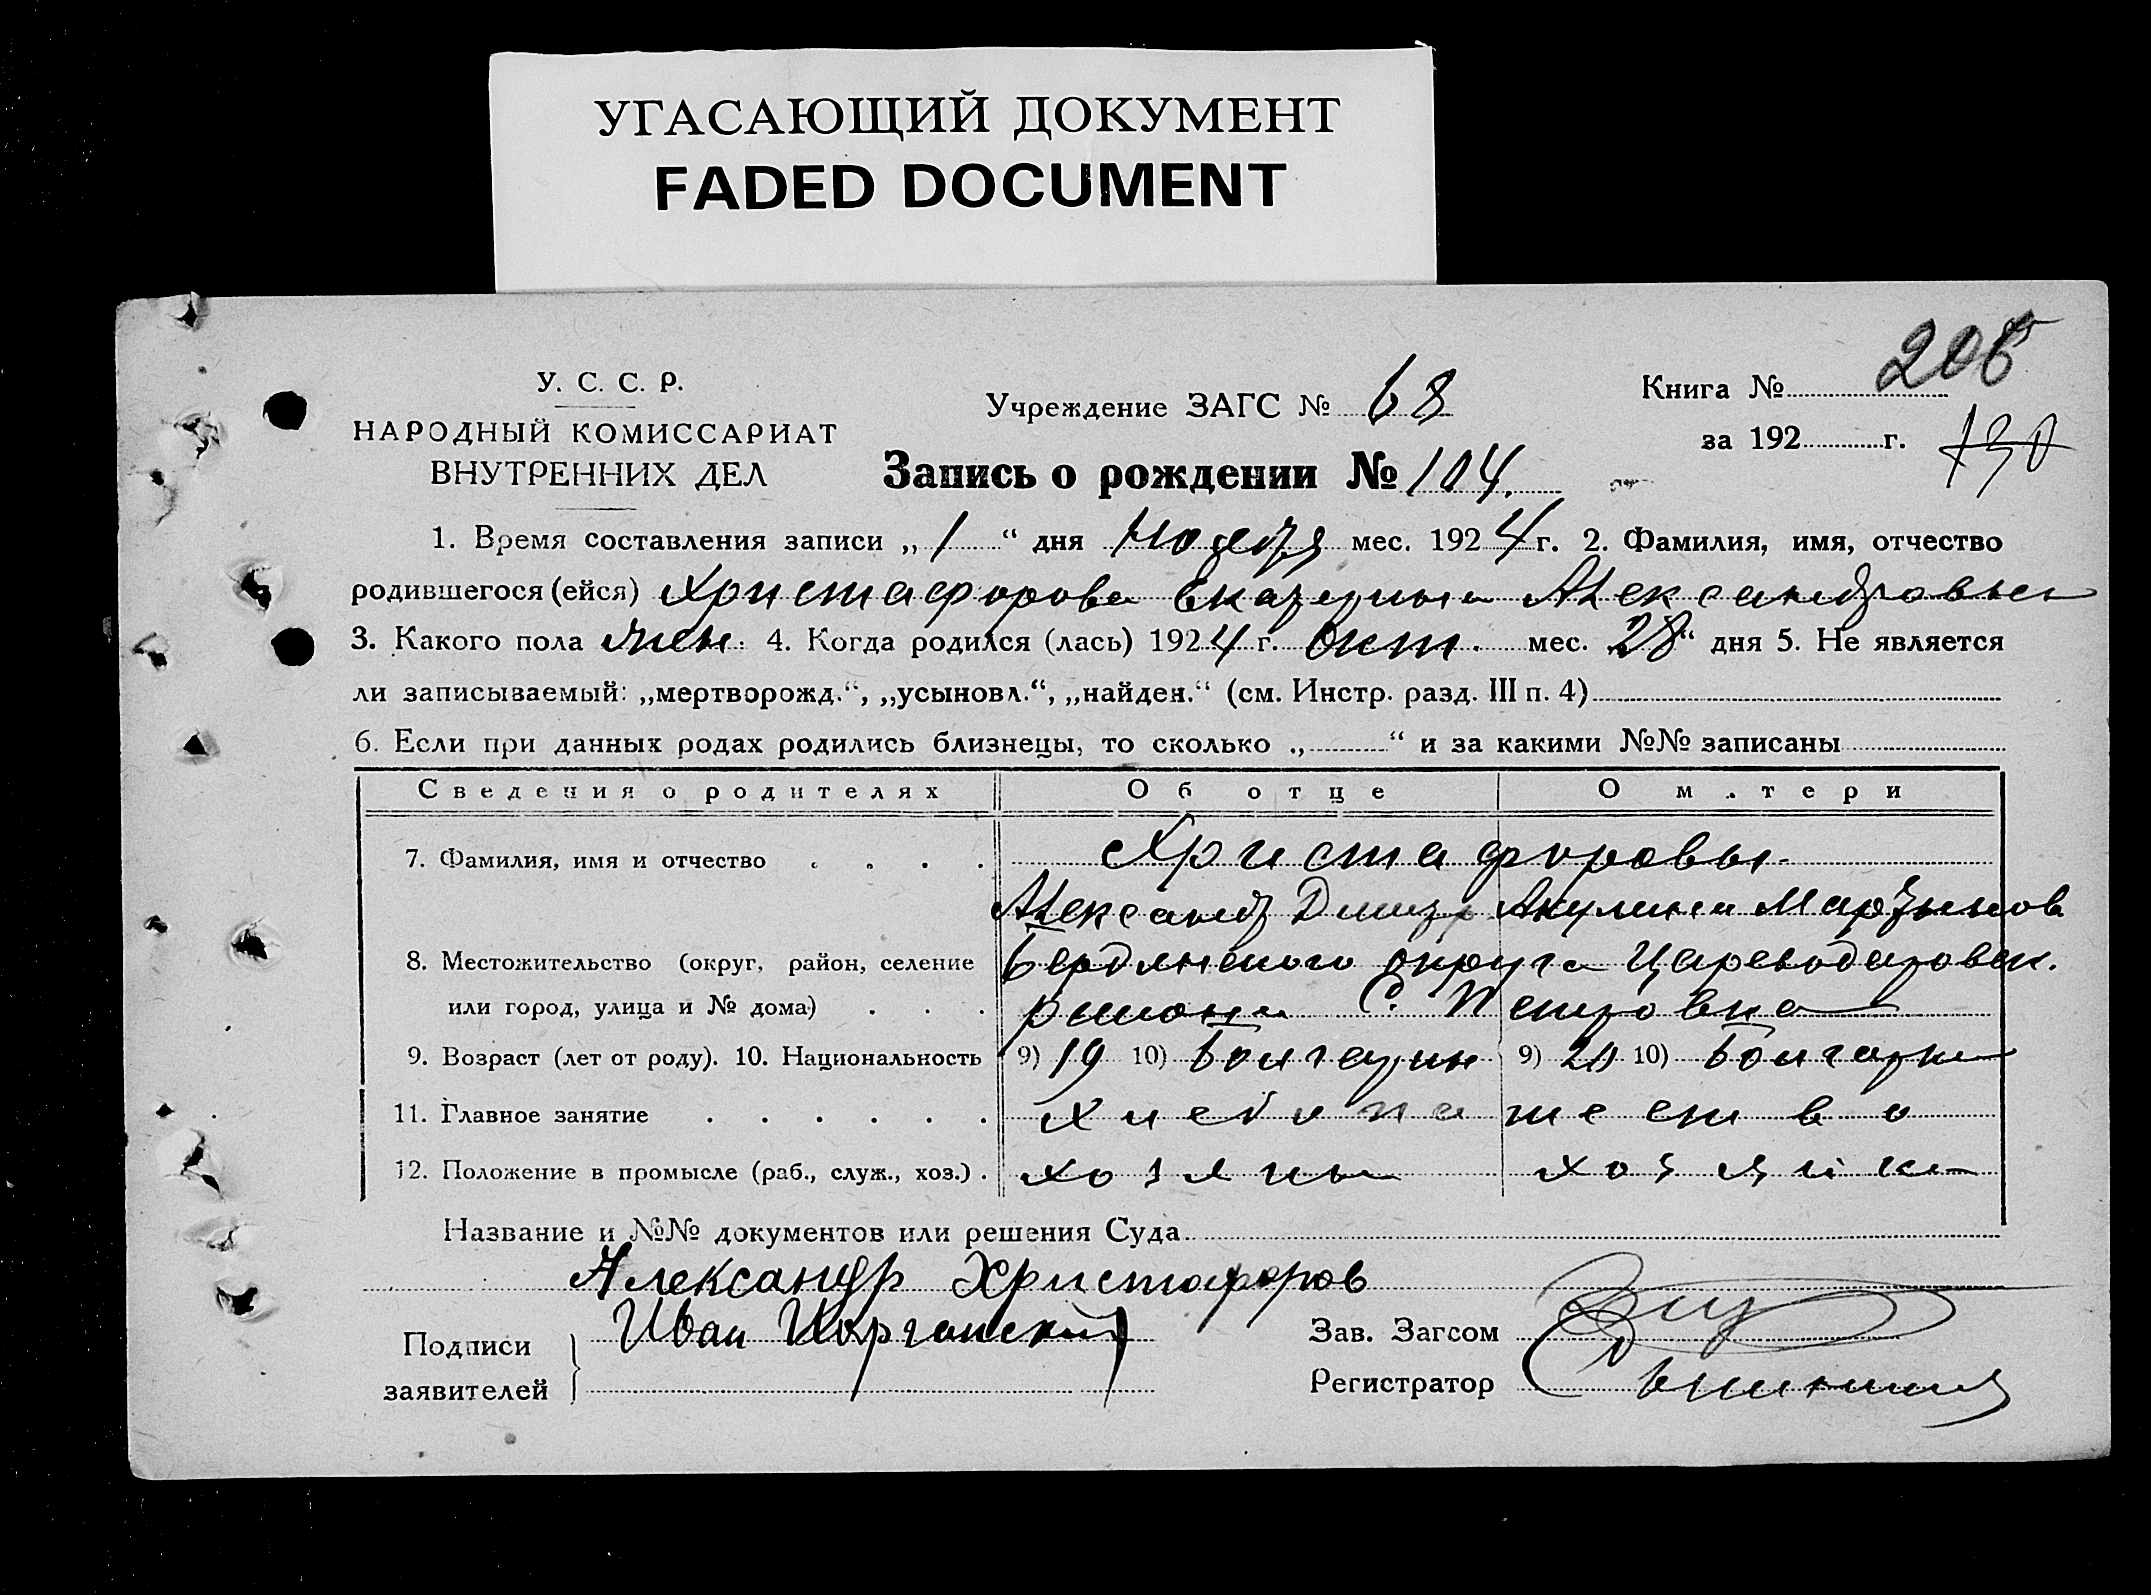 УГАСАЮЩИЙ ДОКУМЕНТ
FADED DOCUMENT
У. С. С. Р.
НАРОДНЫЙ КОМИССАРИАТ
ВНУТРЕННИХ ДЕЛ
Учреждение ЗАГС № 68
Книга № 205
за 192 г. 130
Запись о рождении № 104.
1. Время составления записи „ 1 “ дня Ноября мес. 1924 г. 2. Фамилия, имя, отчество
родившегося (ейся) Христафорова Екатерина Александровна
3. Какого пола жен. 4. Когда родился (лась) 1924 г. Окт. мес. „28“ дня 5. Не является
ли записываемый: „мертворожд.“, „усыновл.“, „найден.“ (см. Инстр. разд. III п. 4)
6. Если при данных родах родились близнецы, то сколько „ “ и за какими №№ записаны
Сведения о родителях Об отце О м.тери
7. Фамилия, имя и отчество . . . . Христафоровы
Александр Дмитр Акулина Мартынов
8. Местожительство (округ, район, селение Бердянского округа Цареводаровск.
или город, улица и № дома) . . . района С. Петровка
9. Возраст (лет от роду). 10. Национальность 9) 19 10) Болгарин 9) 20 10) Болгарка
11. Главное занятие . . . . . . хлебопашество
12. Положение в промысле (раб., служ., хоз.) . хозяин хозяйка
Название и №№ документов или решения Суда
Александр Христофоров
Подписи
заявителей
Иван
Зав. Загсом
Регистратор